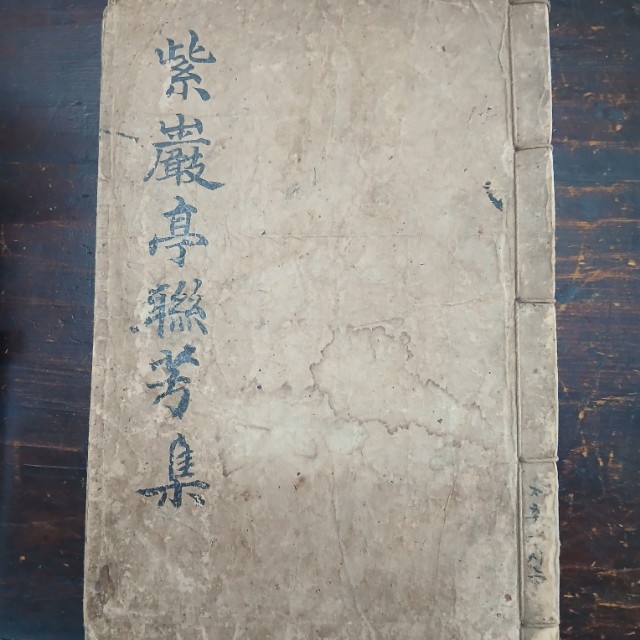 紫巖亭聯芳集